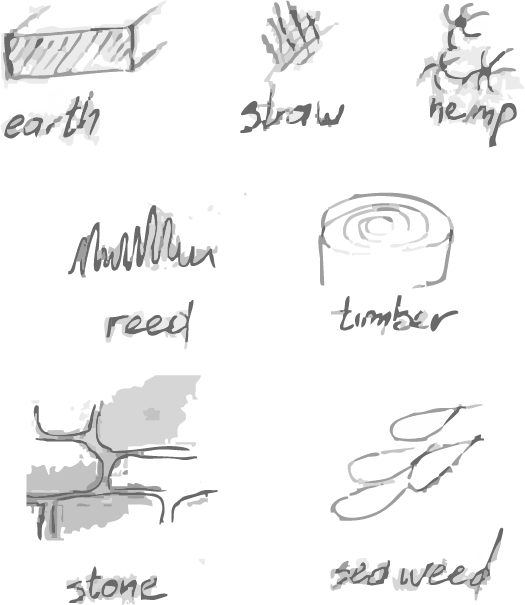 earth
straw
hemp
reed
timber
stone
seaweed